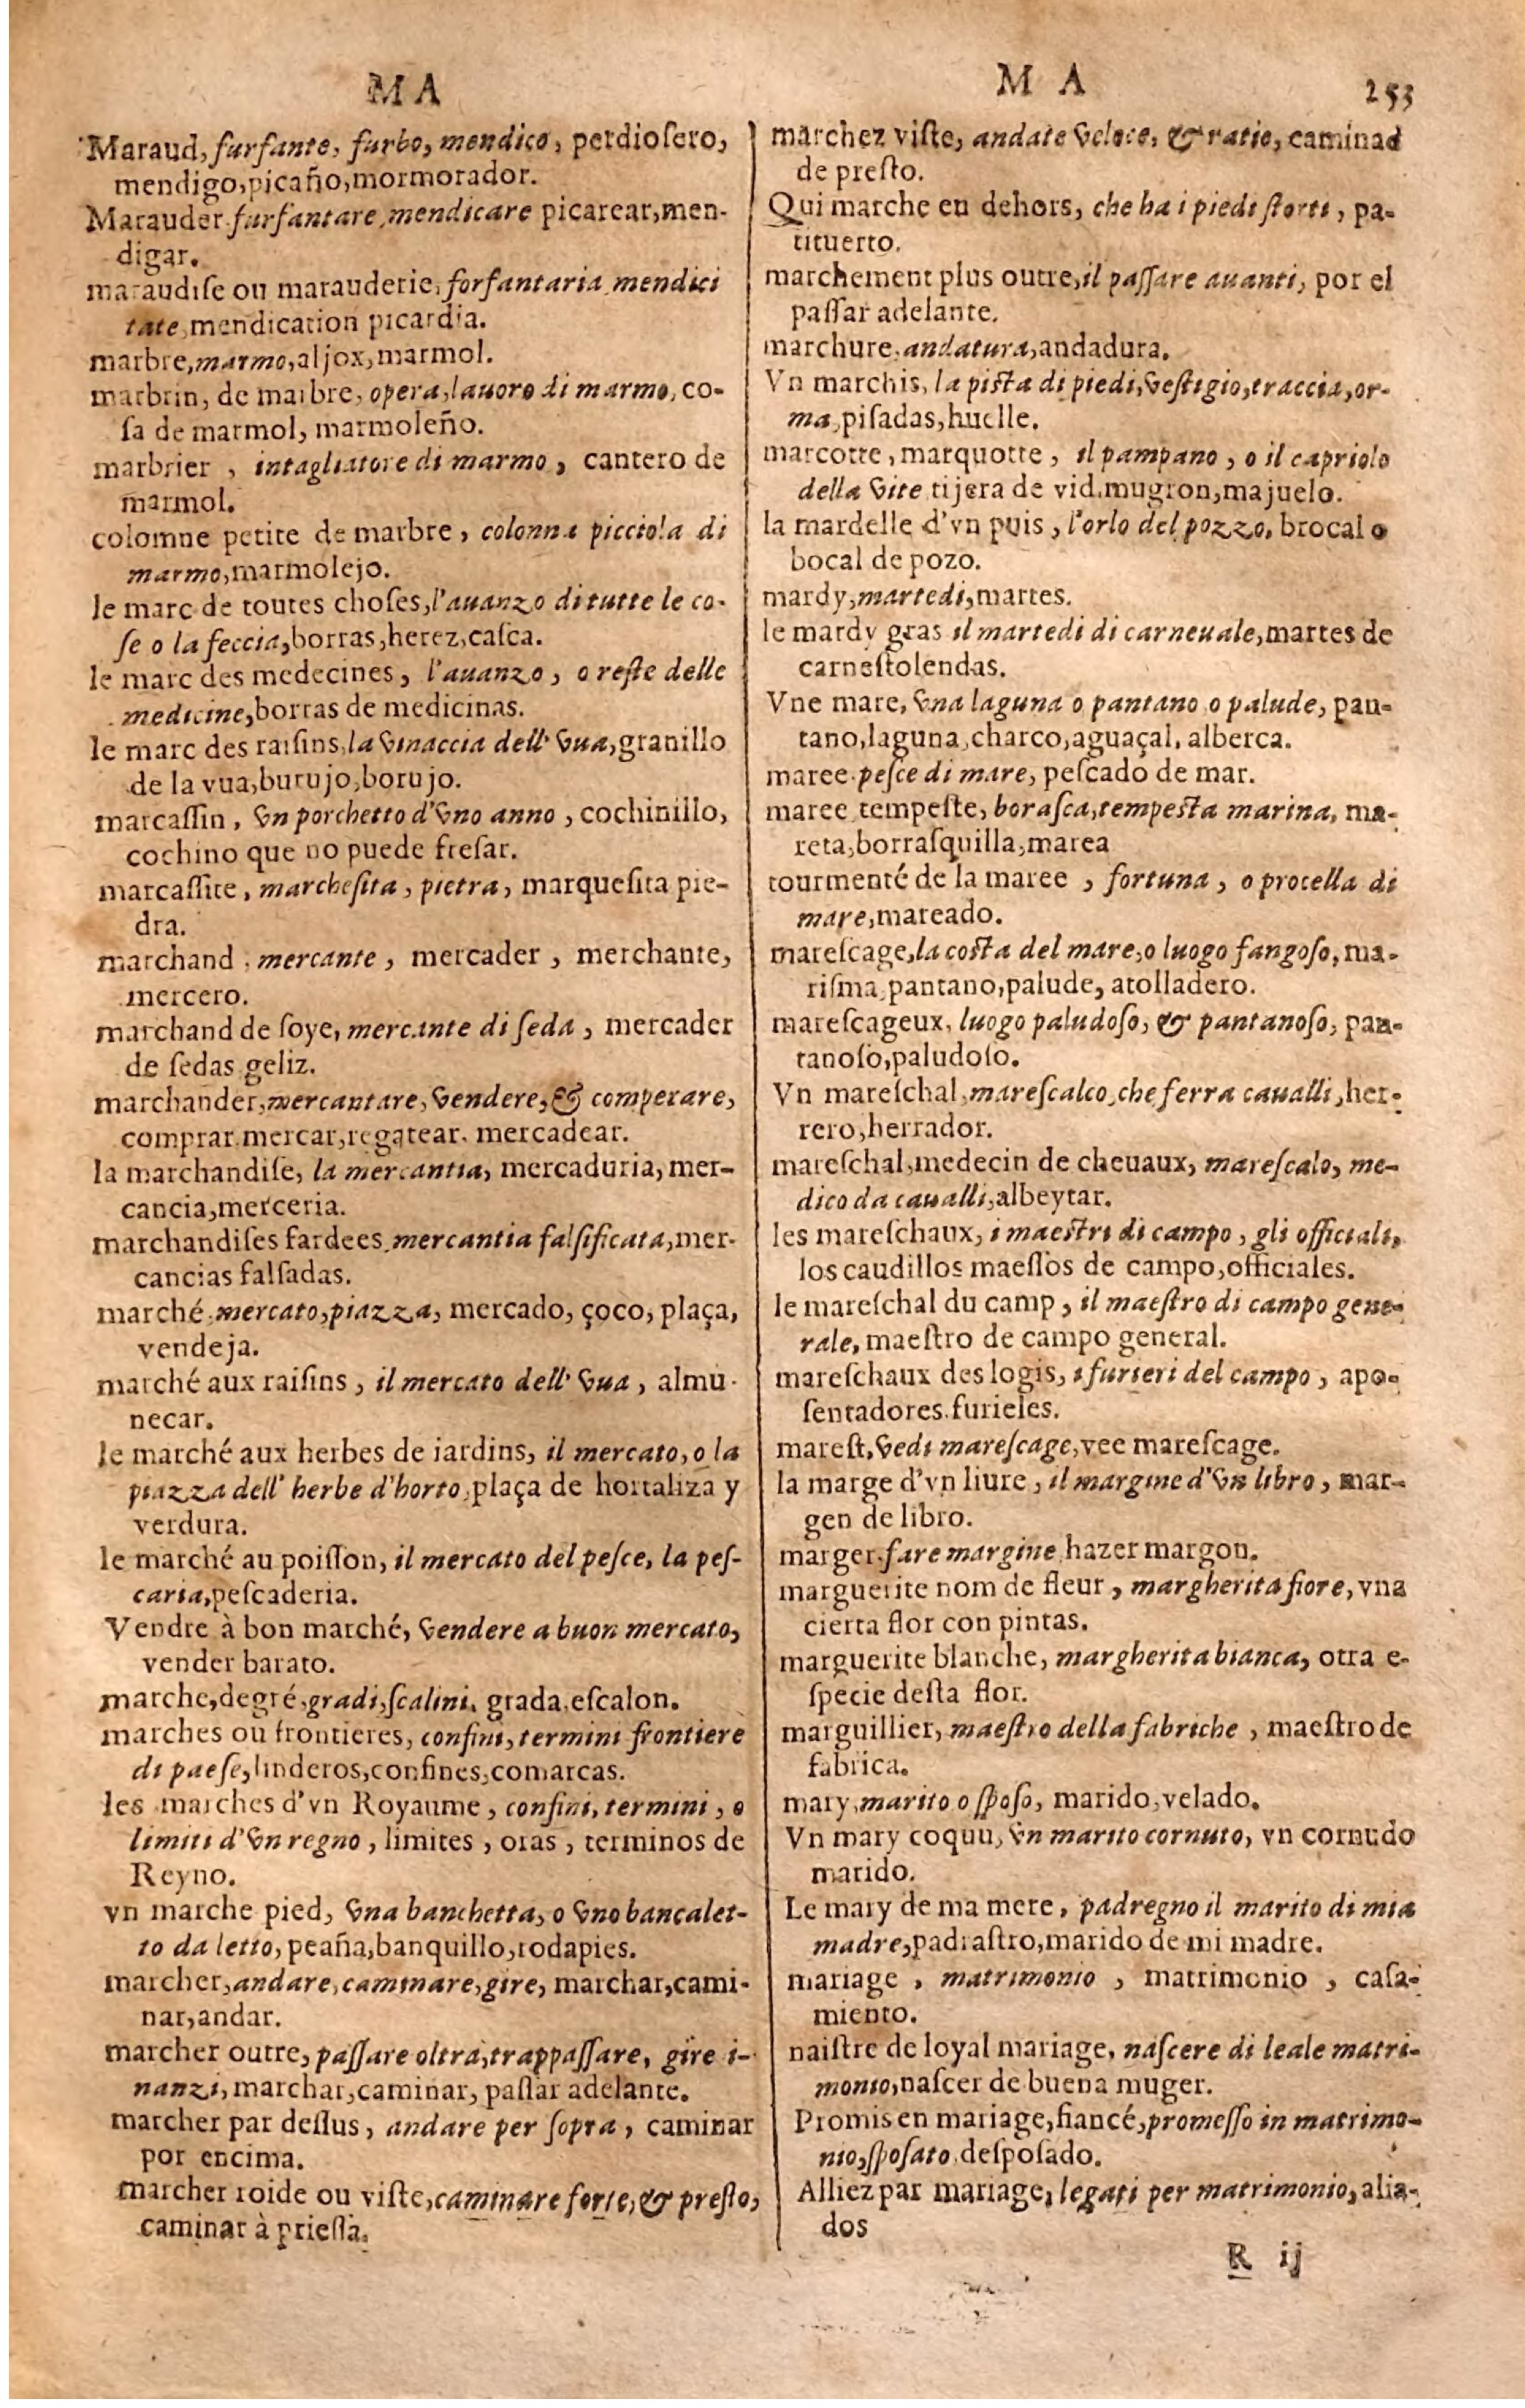 MA
Maraud, furfante, furbo, mendico, perdiosero,
mendigo,picaño,mormorador.
Marauder.furfantare,mendicare picarear,men-
digar.
maraudiſe ou marauderie,forfantaria,mendici
tate,mendication picardia.
marbre,marmo,aljox,marmol.
marbrin, de marbre, opera,lauoro di marmo, co-
ſa de marmol, marmoleño.
marbrier , intagliatore di marmo , cantero de
marmol.
colomne petite de marbre , colonna picciola di
marmo,marmolejo.
le marc de toutes choſes,l'auanzo di tutte le co-
ſe o la feccia,borras,herez,caſca.
le marc des medecines, l'auanzo, o reſte delle
medicine,borras de medicinas.
le marc des raiſins,la vinaccia dell' vua,granillo
de la vua,burujo,borujo.
marcaſſin, vn porchetto d'vno anno , cochinillo,
cochino que no puede freſar.
marcaſſite, marcheſita, pietra, marqueſita pie-
dra.
marchand , mercante , mercader , merchante,
mercero.
marchand de ſoye, mercante di ſeda , mercader
de ſedas geliz.
marchander,mercantare, vendere,& comperare,
comprar.mercar,regatear. mercadear.
la marchandiſe, la mercantia, mercaduria, mer-
cancia,merceria.
marchandiſes fardees,mercantia falſificata,mer-
cancias falſadas.
marché,mercato,piazza, mercado, çoco, plaça,
vendeja.
marché aux raiſins , il mercato dell' vua , almu-
necar.
le marché aux herbes de iardins, il mercato, o la
piazza dell' herbe d'horto,plaça de hortaliza y
verdura.
le marché au poiſſon, il mercato del peſce, la peſ-
caria,peſcaderia.
Vendre à bon marché, vendere a buon mercato,
vender barato.
marche,degré,gradi,ſcalini, grada,eſcalon.
marches ou frontieres, confini, termini frontiere
di paeſe,linderos,confines,comarcas.
les marches d'vn Royaume , confini, termini , o
limiti d'vn regno , limites , oras , terminos de
Reyno.
vn marche pied, vna banchetta, o vno bancalet-
to da letto, peaña,banquillo,rodapies.
marcher,andare,caminare,gire, marchar,cami-
nar,andar.
marcher outre, paſſare oltra,trappaſſare, gire i-
nanzi, marchar,caminar, paſſar adelante.
marcher par deſſus, andare per ſopra, caminar
por encima.
marcher roide ou viſte,caminare forte,& preſto,
caminar à prieſſa.
M A 253
marchez viſte, andate veloce, & ratio, caminad
de preſto.
Qui marche en dehors, che ha i piedi ſtorti, pa-
tituerto.
marchement plus outre,il paſſare auanti, por el
paſſar adelante.
marchure,andatura,andadura.
Vn marchis, la piſta di piedi,veſtigio,traccia,or-
ma,piſadas,huelle.
marcotte, marquotte, il pampano , o il capriolo
della vite tijera de vid.mugron,majuelo.
la mardelle d'vn puis , l'orlo del pozzo, brocal o
bocal de pozo.
mardy,martedi,martes.
le mardy gras il martedi di carneuale,martes de
carneſtolendas.
Vne mare, vna laguna o pantano o palude, pan-
tano,laguna,charco,aguaçal, alberca.
maree.peſce di mare, peſcado de mar.
maree tempeſte, boraſca,tempeſta marina, ma-
reta,borraſquilla,marea
tourmenté de la maree , fortuna , o procella di
mare,mareado.
mareſcage,la coſta del mare,o luogo fangoſo, ma-
riſma,pantano,palude, atolladero.
mareſcageux, luogo paludoſo, & pantanoſo, pan-
tanoſo,paludoſo.
Vn mareſchal,mareſcalco,che ferra caualli,her-
rero,herrador.
mareſchal,medecin de cheuaux, mareſcalo, me-
dico da caualli,albeytar.
les mareſchaux, i maeſtri di campo , gli officiali,
los caudillos maeſſos de campo,officiales.
le mareſchal du camp , il maeſtro di campo gene-
rale, maeſtro de campo general.
mareſchaux des logis, i furieri del campo , apo-
ſentadores.furieles.
mareſt,vedi mareſcage,vee mareſcage.
la marge d'vn liure , il margine d'vn libro , mar-
gen de libro.
marger.fare margine hazer margon.
marguerite nom de fleur , margherita fiore, vna
cierta flor con pintas.
marguerite blanche, margherita bianca, otra e-
ſpecie deſta flor.
marguillier, maeſtro della fabriche , maeſtro de
fabrica.
mary,marito o ſpoſo, marido,velado.
Vn mary coquu, vn marito cornuto, vn cornudo
marido.
Le mary de ma mere, padregno il marito di mia
madre,padraſtro,marido de mi madre.
mariage , matrimonio , matrimonio , caſa-
miento.
naiſtre de loyal mariage, naſcere di leale matri-
monio,naſcer de buena muger.
Promis en mariage,fiancé,promeſſo in matrimo-
nio,ſpoſato deſpoſado.
Alliez par mariage, legati per matrimonio, alia-
dos
R ij